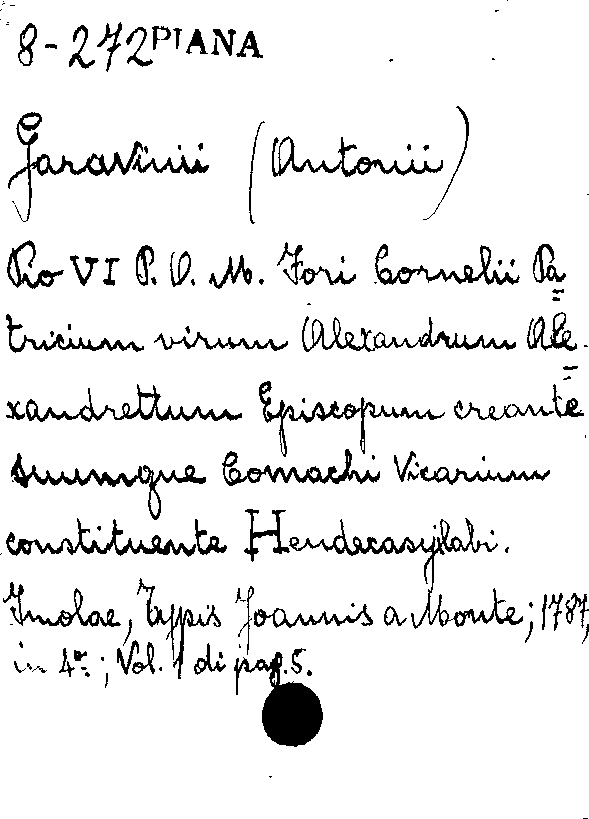 8-272 PIANA
Garavinii (Antonii)
Pio VI P. O. M. Fori Cornelii Pa=
tricium virum Alexandrum Ale=
xandrettum Episcopum creante
suumque Comachi Vicarium
constituente Hendecasyllabi.
Imolae, Typis Joannis a Monte; 1787,
in 4º; Vol. 1 di pag. 5.